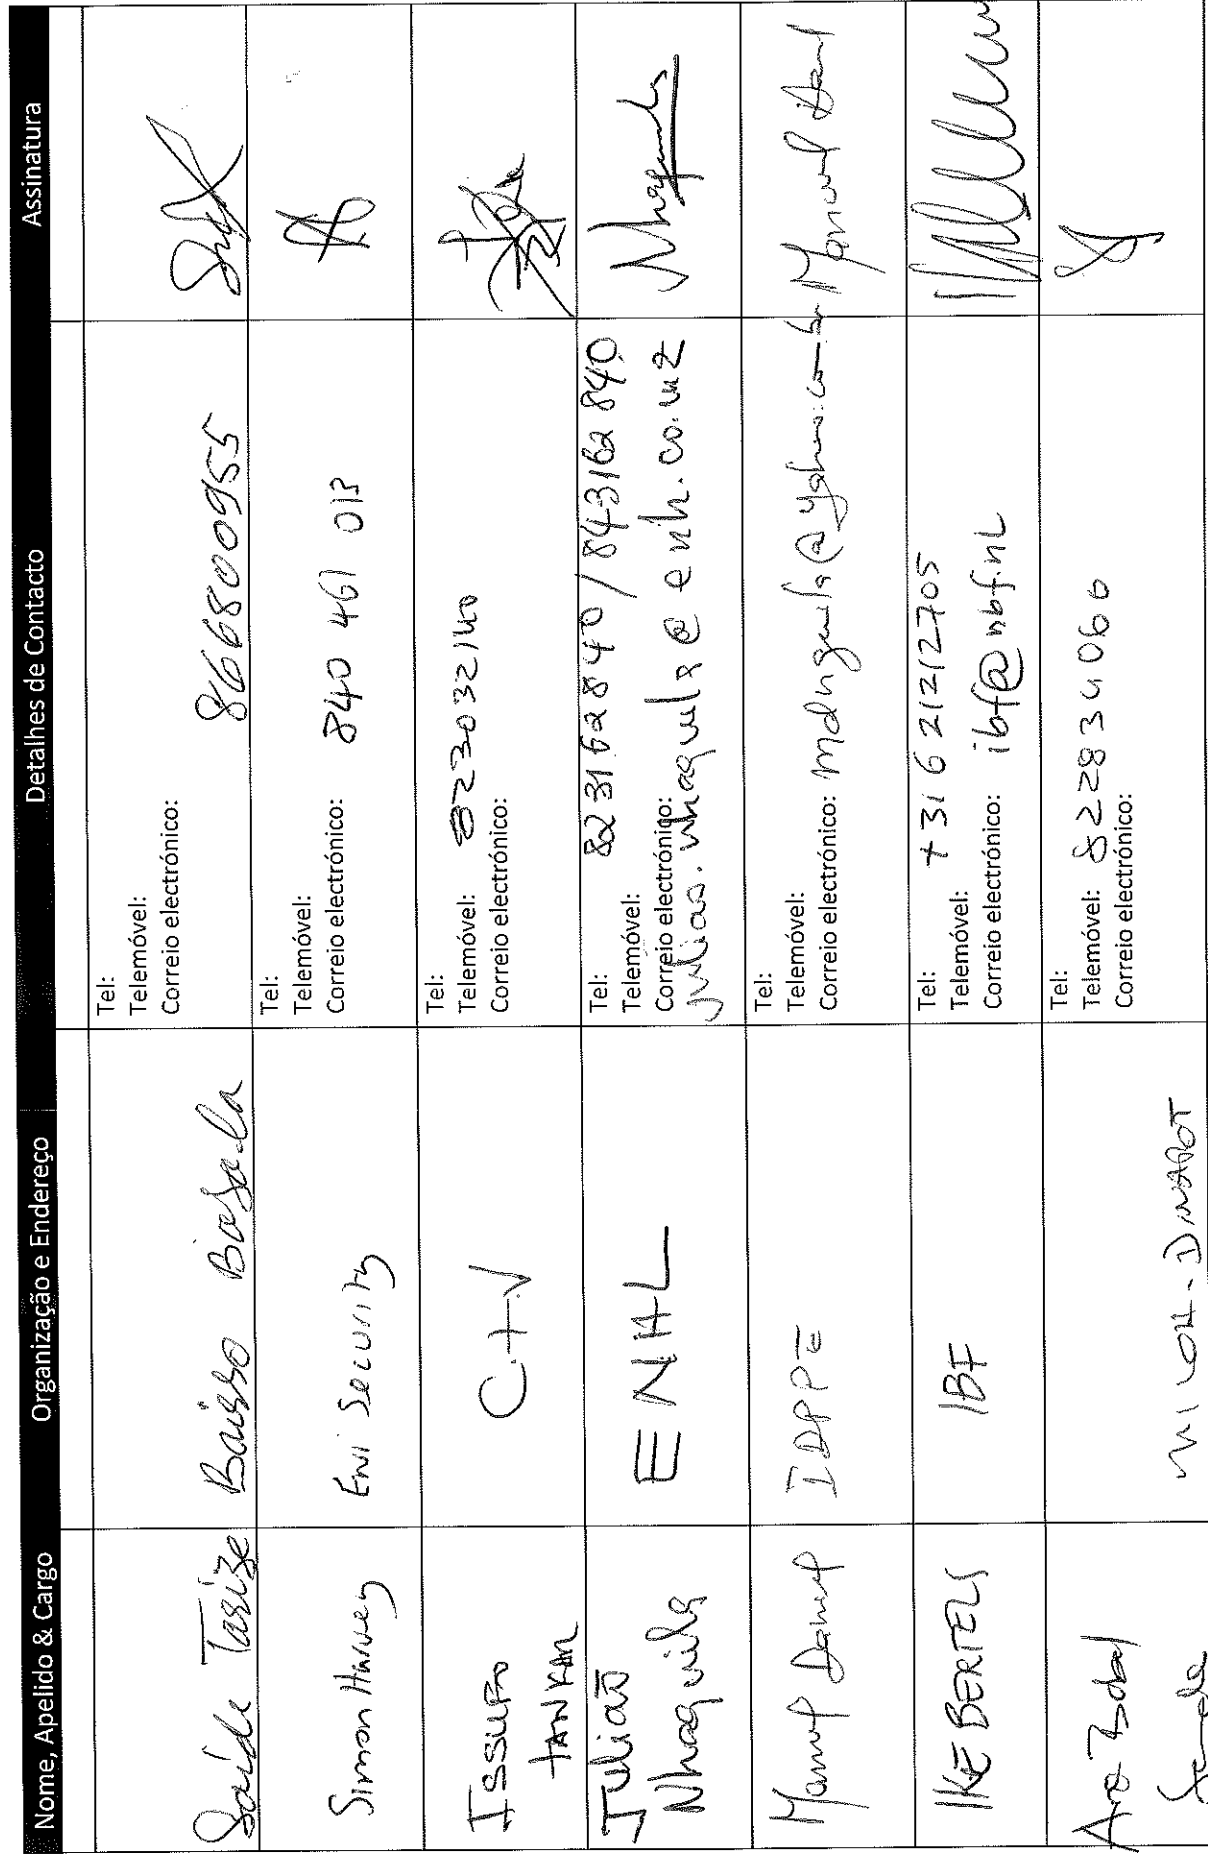 Nome, Apelido & Cargo Organização e Endereço Detalhes de Contacto Assinatura
Saíde Tarize Bairro
Tel:
Telemóvel: 866800955
Correio electrónico:
Simon Harvey Eni Security
Tel:
Telemóvel:
Correio electrónico: 840 461 013
ISSUFO
TANKAR
C.T.V
Tel:
Telemóvel: 823032140
Correio electrónico:
Julião
Nhaquila
ENHL
Tel: 823162840 / 843162840
Telemóvel:
Correio electrónico:
juliao.nhaquila@enh.co.mz
Manuel Daniel IDPPE
Tel:
Telemóvel:
Correio electrónico:
Manuel
IKE BERTELS IBF
Tel: +31621212705
Telemóvel:
Correio electrónico: ibf@nbf.nL
Tel:
Telemóvel: 822834060
Correio electrónico: